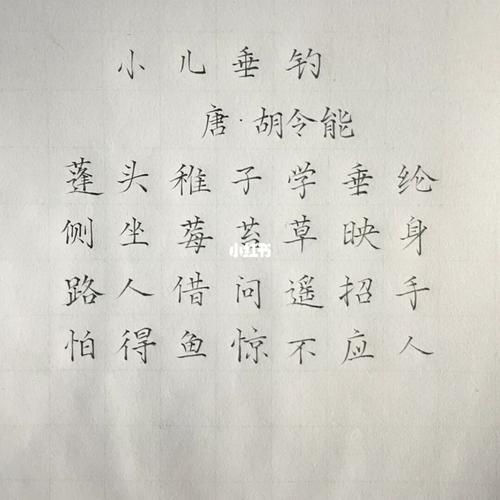 小儿垂钓
唐·胡令能
蓬头稚子学垂纶
侧坐莓苔草映身
路人借问遥招手
怕得鱼惊不应人
小红书